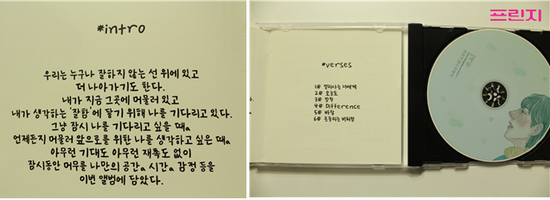 *intro
우리는 누구나 잘하지 않는 선 위에 있고
더 나아가기도 한다.
내가 지금 그곳에 머물러 있고
내가 생각하는 '잘함'에 닿기 위해 나를 기다리고 있다.
그냥 잠시 나를 기다리고 싶을 때,
언제든지 머물러 앞으로를 위한 나를 생각하고 싶은 때,
아무런 기대도 아무런 재촉도 없이
잠시동안 머무를 나만의 공간, 시간, 감정 등을
이번 앨범에 담았다.
프린지
*verses
1#
2# 오늘도
3#
4# Difference
5# 바람
6#